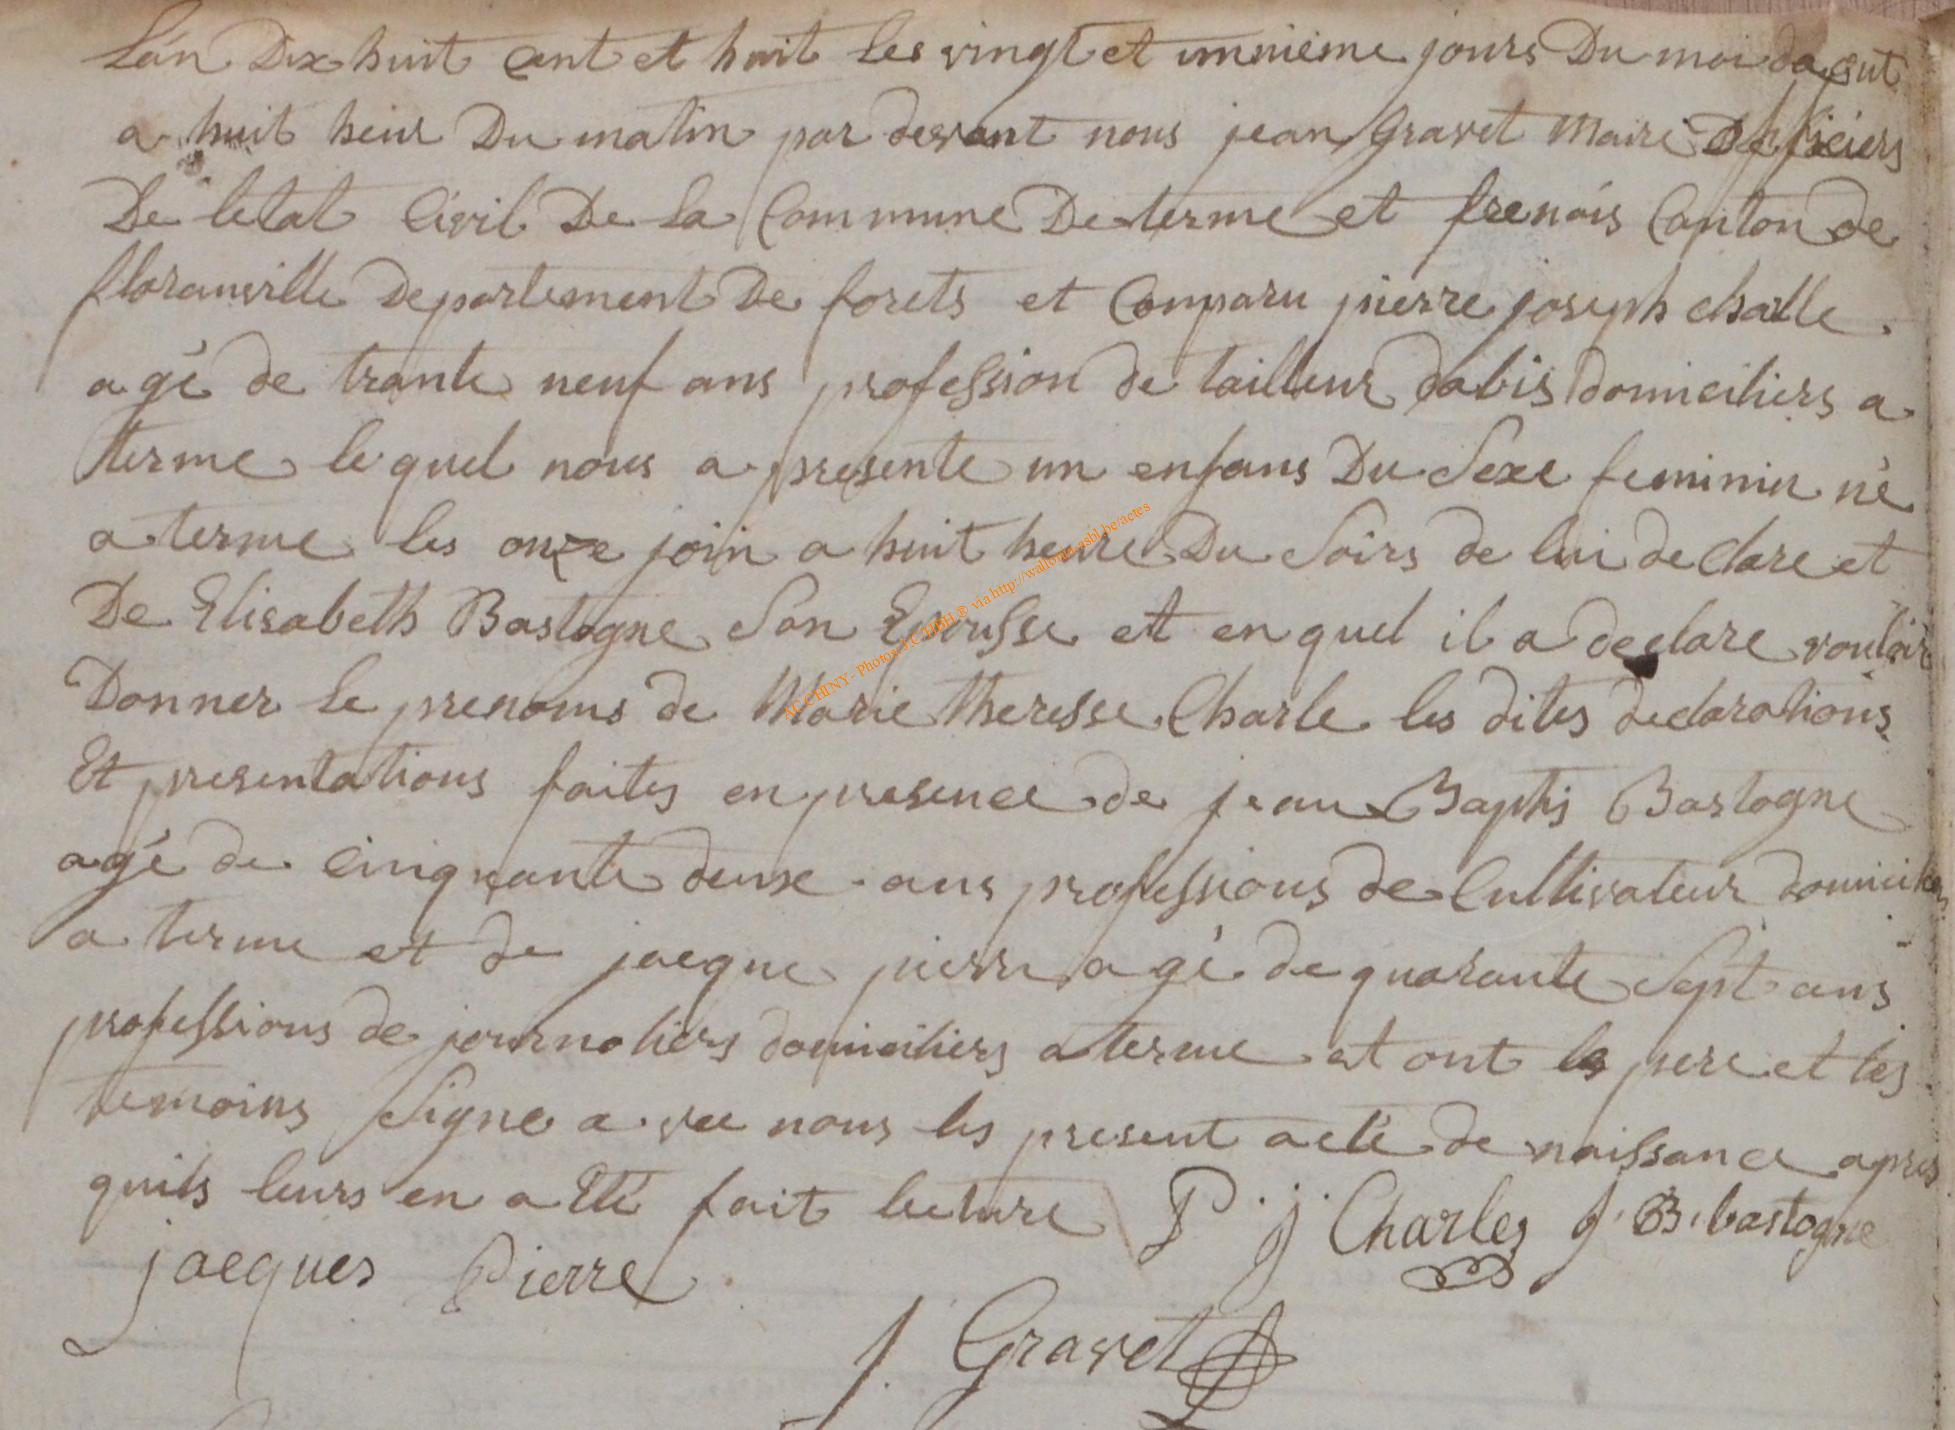 L'an Dix huit cent et huit les vingt et unnieme jours Du moi daout
a huit heur Du matin par devant nous jean gravet Maire officiers
De letat Civil De La Commune De terme et frenois Canton de
floranville departement De forets et Comparu pierre joseph charle
agé de trante neuf ans profession de tailleur dabis domiciliers a
terme le quel nous a presente un enfans Du Sexe feminin né
a terme les onze join a huit heure Du Soirs de lui declare et
De Elisabeth Bastogne Son Epousse et en quel il a declare vouloir
Donner Le prenoms de Marie theresse Charle les dites declarations
Et presentations faites en presence de jean Baptis Bastogne
agé de cinquante deuxe ans professions de Cultivateur domiciliers
a terme et de jacque pierre agé de quarante Sept ans
professions de journaliers domiciliers a terme et ont le pere et les
temoins Signe a vec nous les present acte de naissance apres
quils leurs en a Eté fait lecture P. j. Charles J. B. bastogne
jacques Pierre
J. Gravet
ACCHINY - Photos via http://wallonia.asbl.be/actes